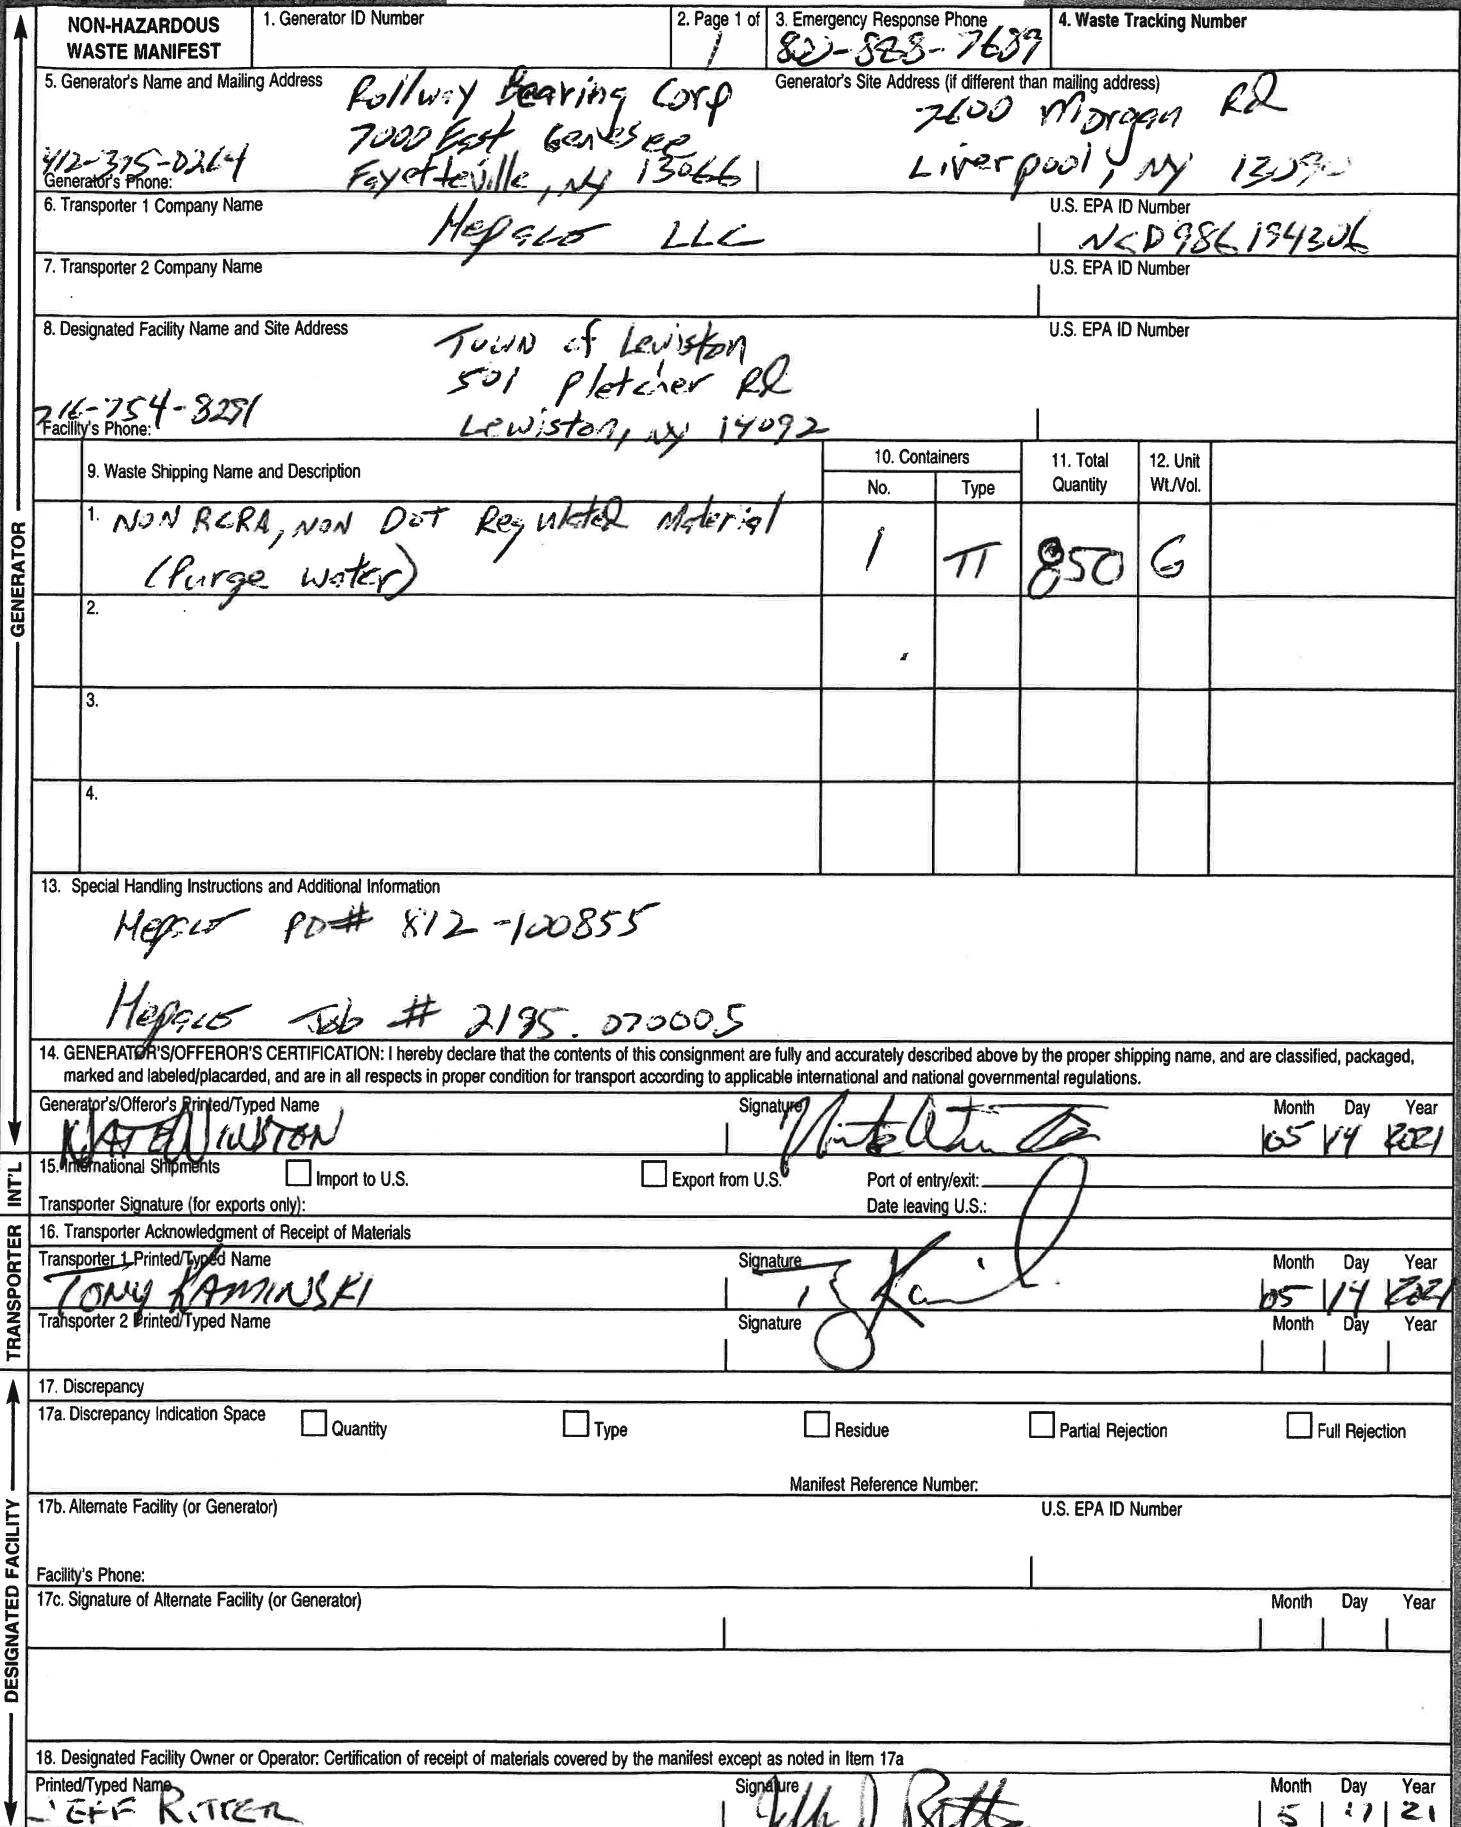 NON-HAZARDOUS WASTE MANIFEST
1. Generator ID Number
2. Page 1 of
1
3. Emergency Response Phone
4. Waste Tracking Number
5. Generator's Name and Mailing Address
Rollway Bearing Corp
7000 East Genesee
Fayetteville, NY 13066
Generator's Site Address (if different than mailing address)
7600 Morgan Rd
Liverpool, NY 13090
Generator's Phone:
6. Transporter 1 Company Name
Hepaco LLC
U.S. EPA ID Number
NCD986194306
7. Transporter 2 Company Name
U.S. EPA ID Number
8. Designated Facility Name and Site Address
Town of Lewiston
501 Pletcher Rd
Lewiston, NY 14092
U.S. EPA ID Number
716-754-8291
Facility's Phone:
9. Waste Shipping Name and Description
10. Containers
No.
Type
11. Total Quantity
12. Unit Wt./Vol.
1. NON RCRA, NON DOT Regulated Material
(Purge water)
1 TT 850 G
2.
3.
4.
13. Special Handling Instructions and Additional Information
Hepaco PO# 812-100855
Hepaco Job # 2195.070005
14. GENERATOR'S/OFFEROR'S CERTIFICATION: I hereby declare that the contents of this consignment are fully and accurately described above by the proper shipping name, and are classified, packaged,
marked and labeled/placarded, and are in all respects in proper condition for transport according to applicable international and national governmental regulations.
Generator's/Offeror's Printed/Typed Name
Signature
Month Day Year
NATE WINSTON
05 14 2021
15. International Shipments
Import to U.S.
Export from U.S.
Port of entry/exit:
Transporter Signature (for exports only):
Date leaving U.S.:
16. Transporter Acknowledgment of Receipt of Materials
Transporter 1 Printed/Typed Name
Signature
Month Day Year
TONY KAMINSKI
05 14 2021
Transporter 2 Printed/Typed Name
Signature
Month Day Year
17. Discrepancy
17a. Discrepancy Indication Space
Quantity
Type
Residue
Partial Rejection
Full Rejection
Manifest Reference Number:
17b. Alternate Facility (or Generator)
U.S. EPA ID Number
Facility's Phone:
17c. Signature of Alternate Facility (or Generator)
Month Day Year
18. Designated Facility Owner or Operator: Certification of receipt of materials covered by the manifest except as noted in Item 17a
Printed/Typed Name
Signature
Month Day Year
JEFF RITTER
5 17 21
GENERATOR
INT'L
TRANSPORTER
DESIGNATED FACILITY